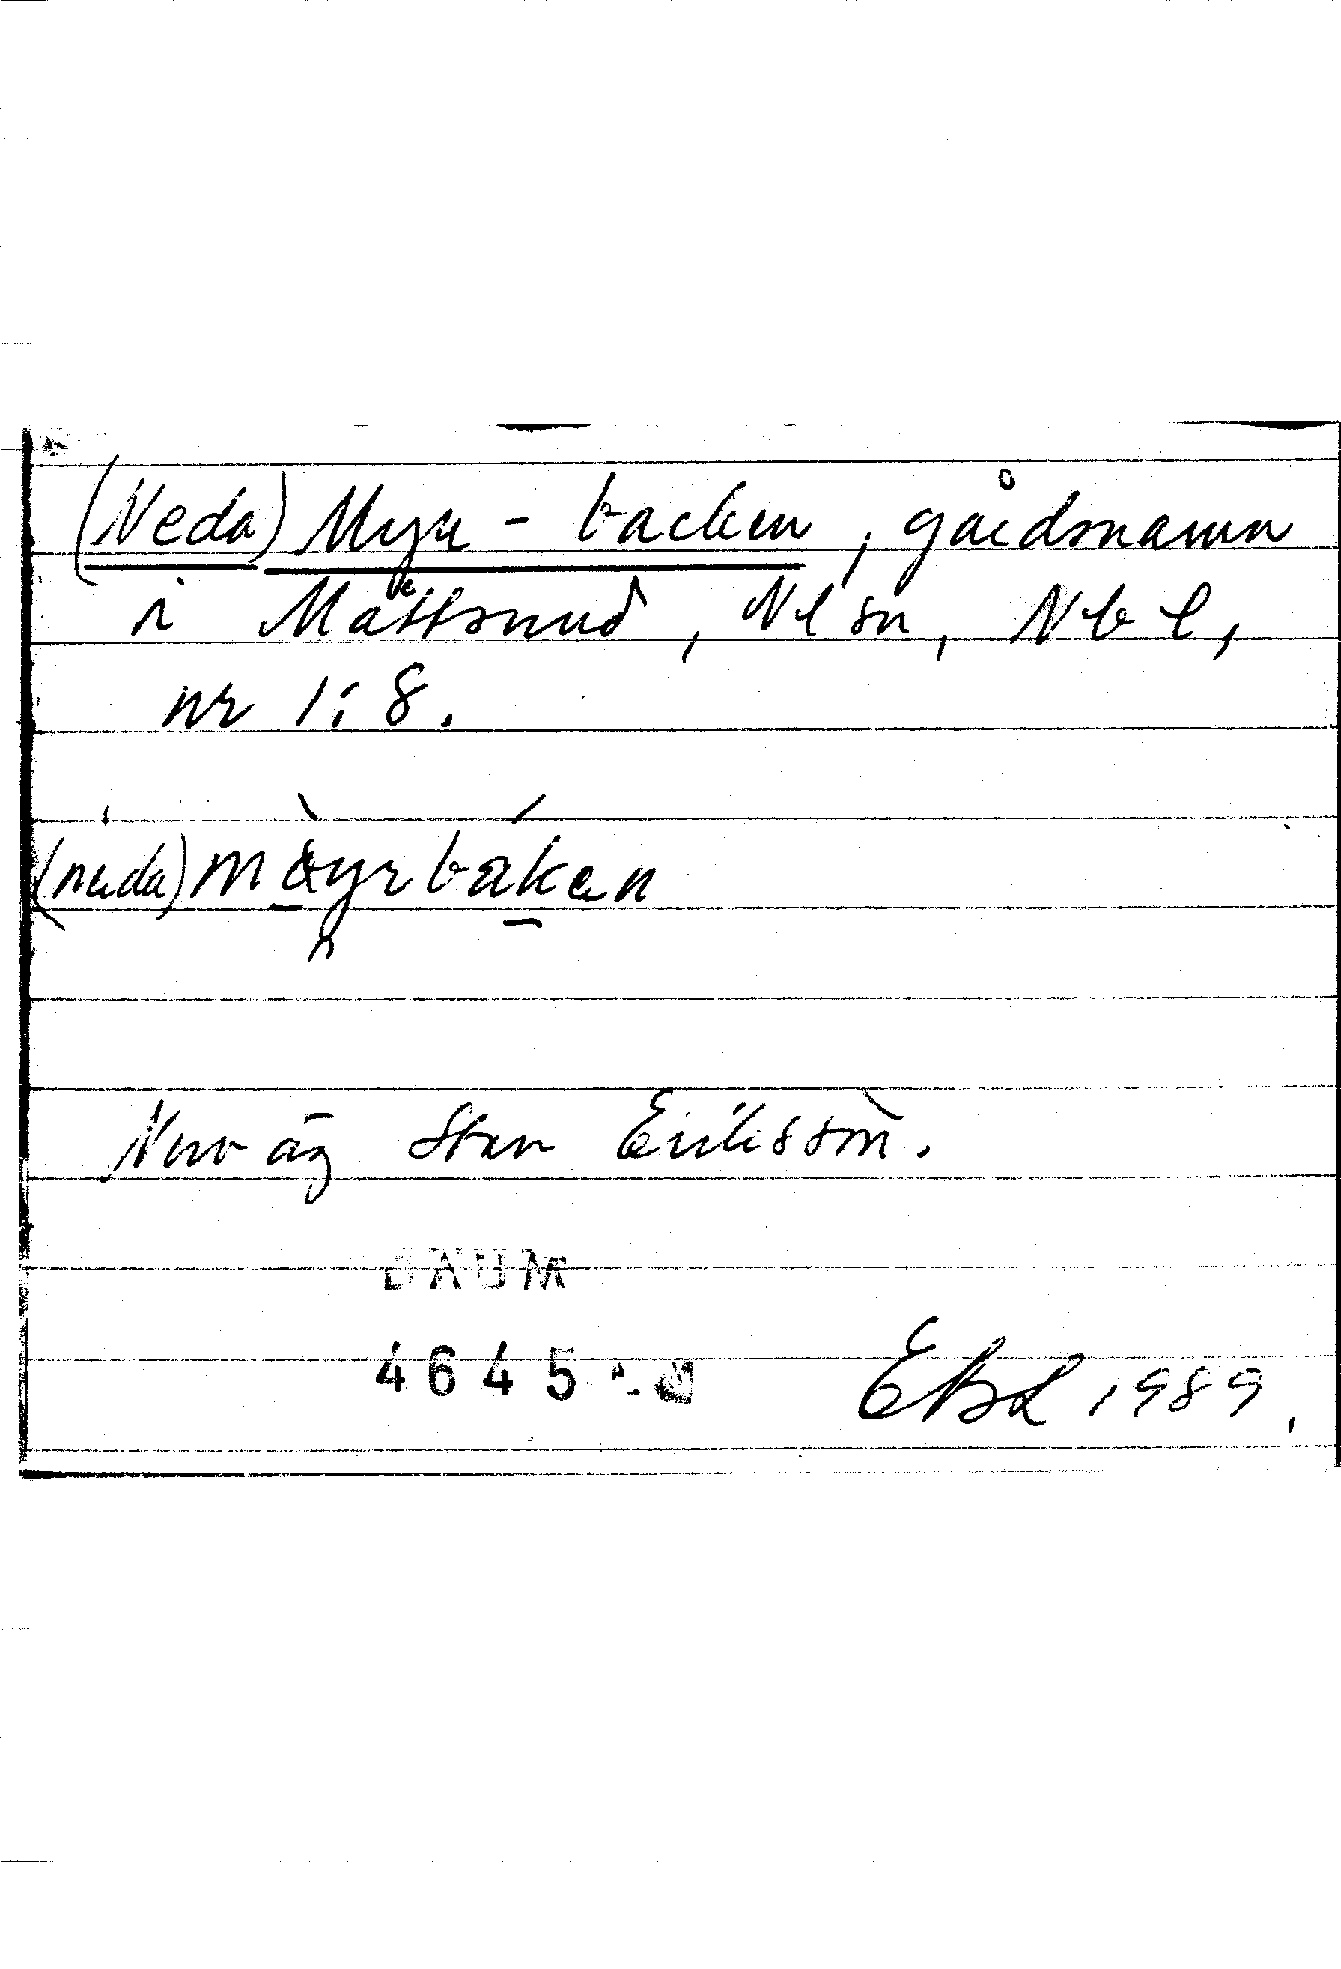 (Neda) Myr-backen, gårdsnamn
i Måttsund, Nl sn, Nb l,
nr 1:8.
(neda) mäyrbakan
Nuv äg Sten Eriksson.
DAUM
4645
EBd 1989.